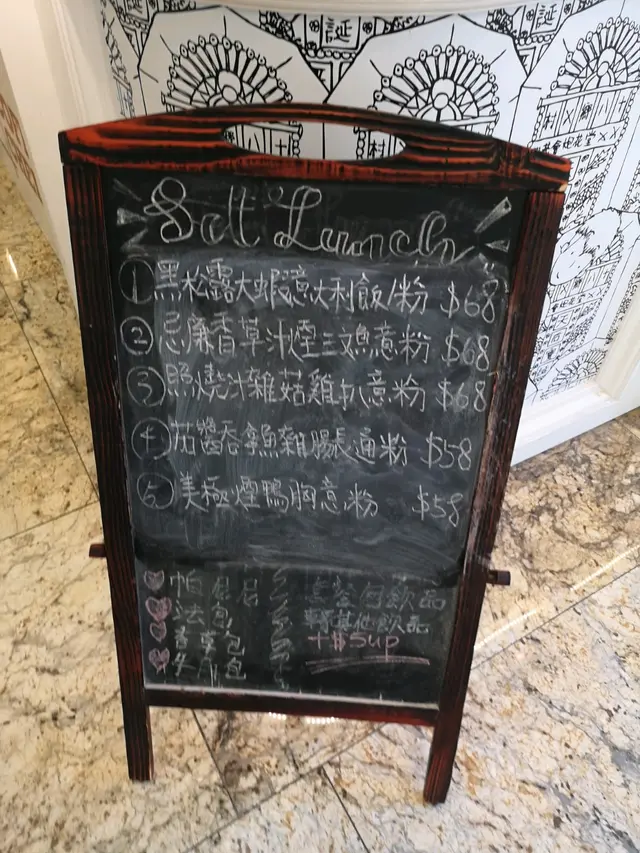 誕
村
Set Lunch
① 黑松露大蝦意大利飯/粉 $68
② 忌廉香草汁煙三文魚意粉 $68
③ 照燒汁雜菇雞扒意粉 $68
④ 茄醬吞拿魚雜腸長通粉 $58
⑤ 美極煙鴨胸意粉 $58
帕尼尼
法包
香草包
牛角包
套餐包飲品
轉其他飲品
+$5up